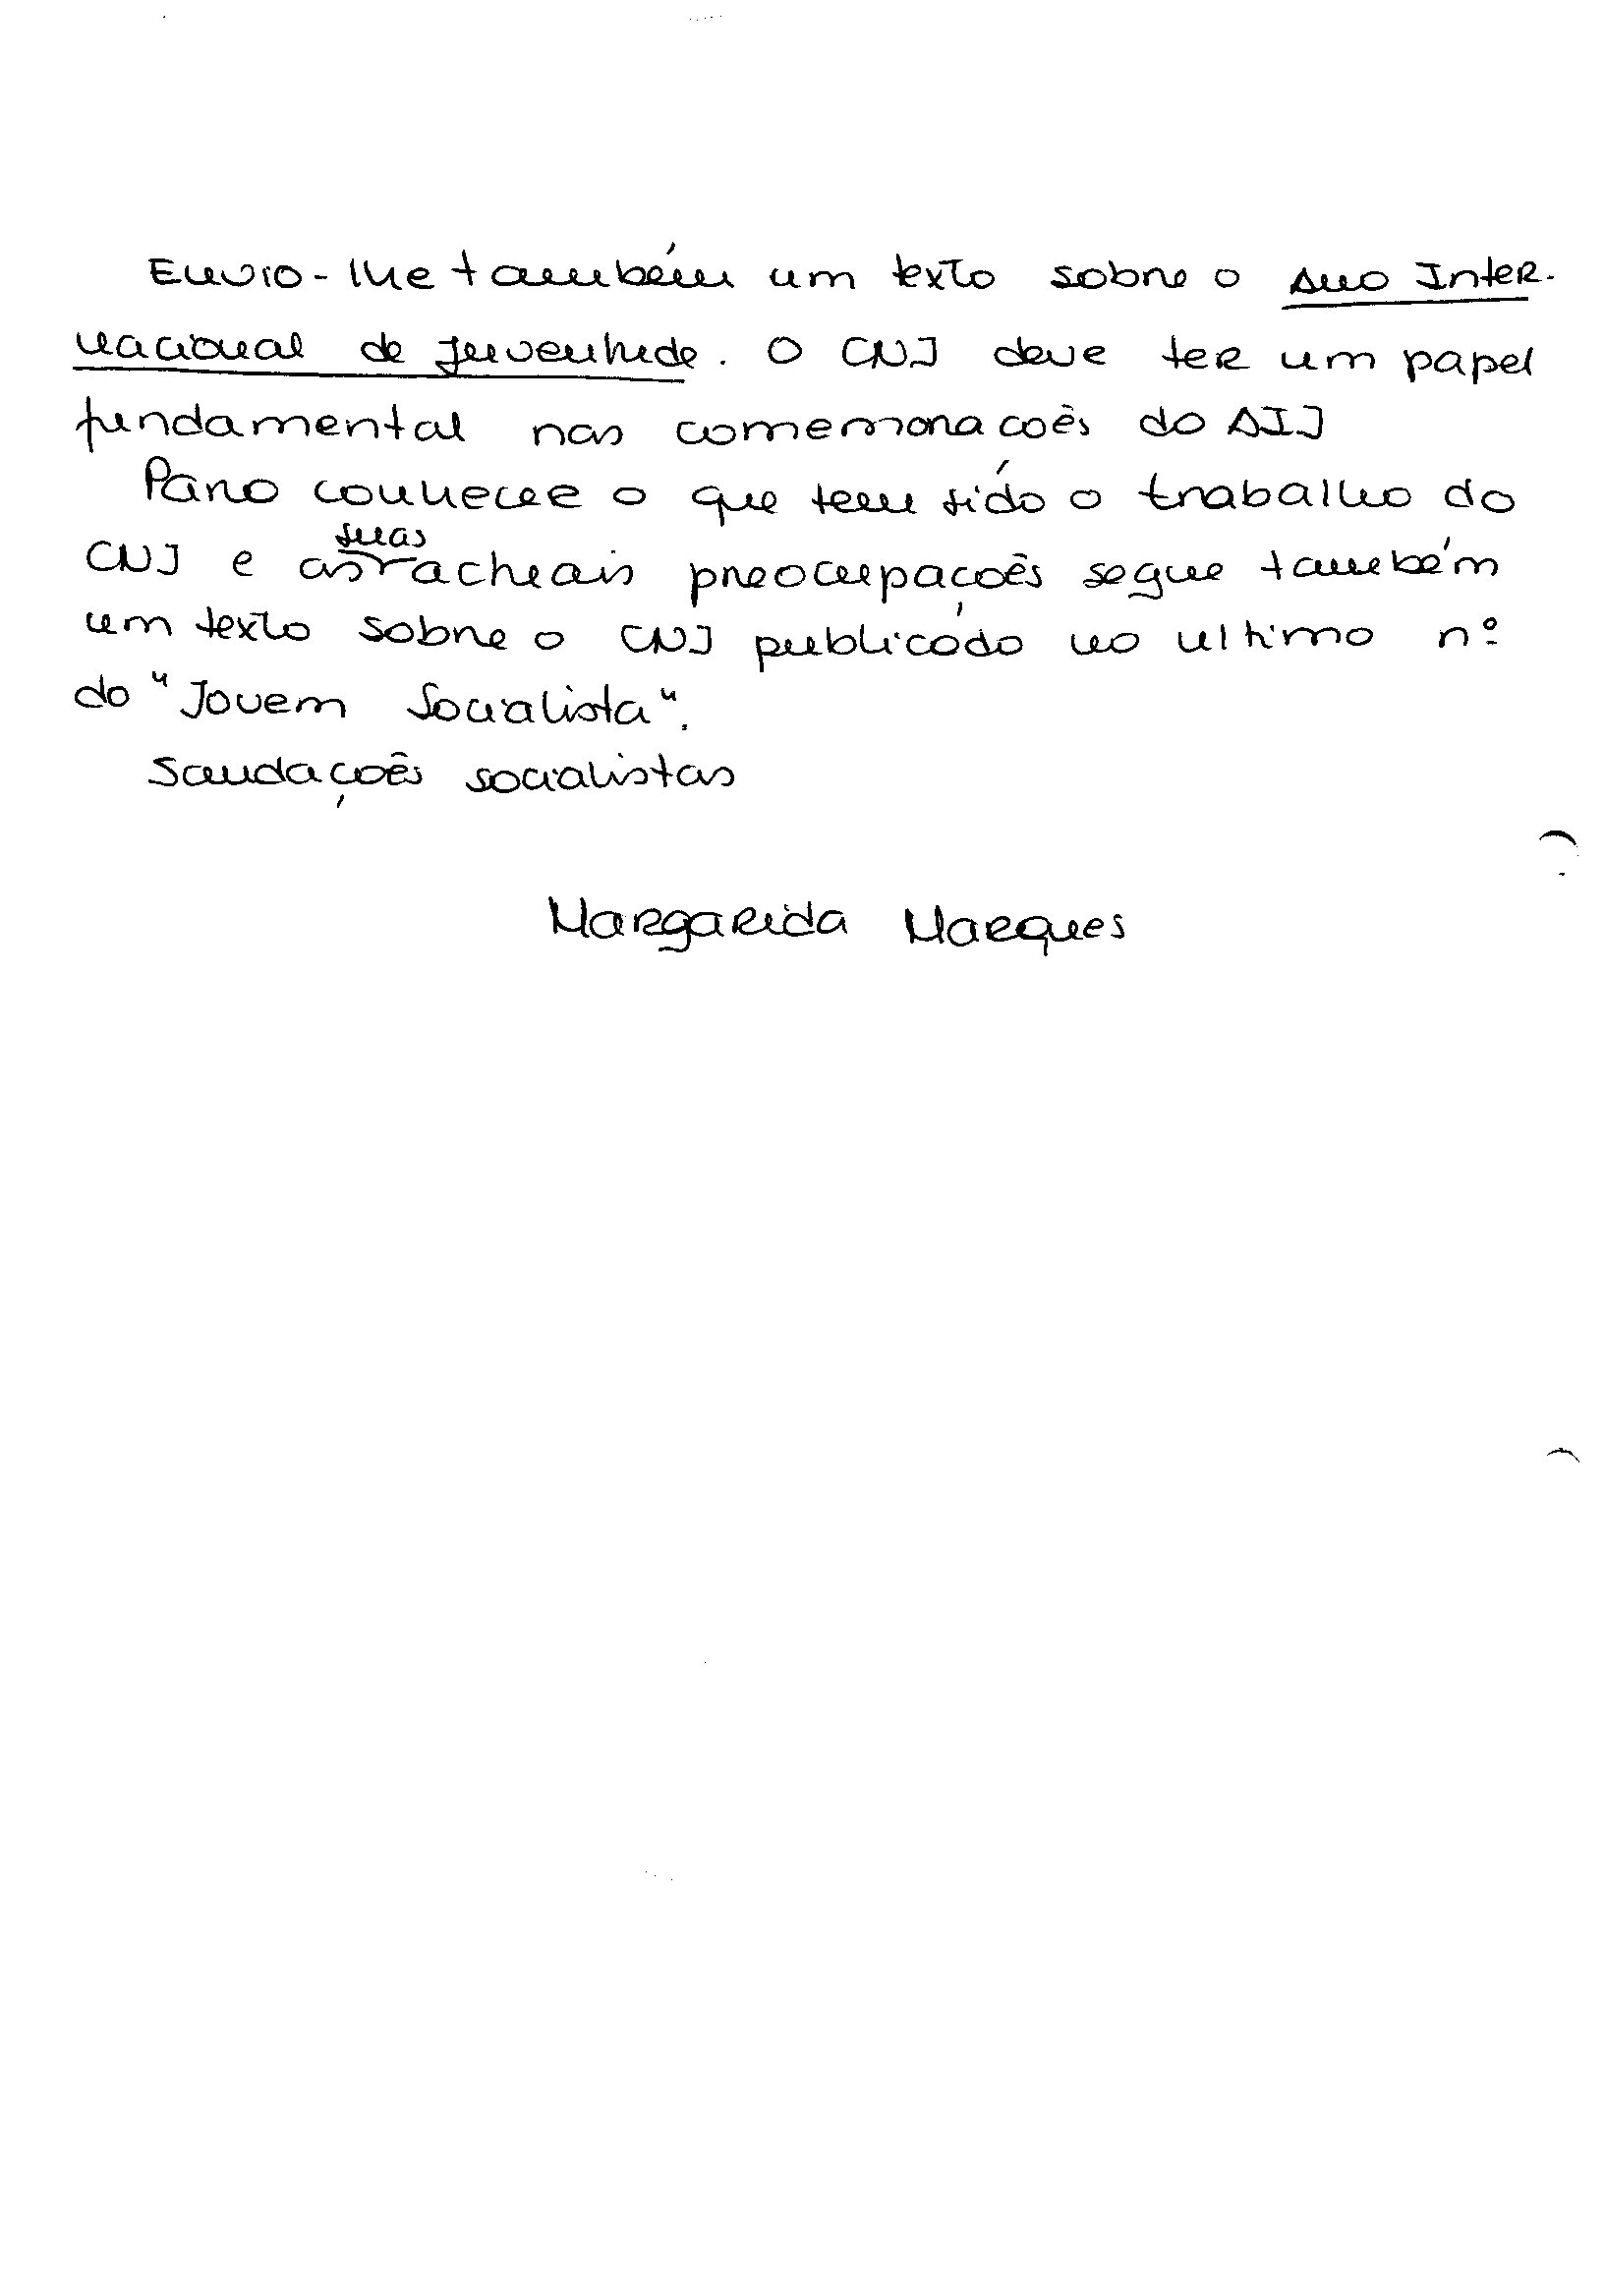 Envio-lhe também um texto sobre o Ano Inter-
nacional de Juventude. O CNJ deve ter um papel
fundamental nas comemoracoês do AIJ
Para conhecer o que tem sído o trabalho do
CNJ e as suas actuais preocupaçoês segue também
um texto sobre o CNJ publicado no ultimo nº
do "Jovem Socialista".
Saudaçoês socialistas
Margarida Marques